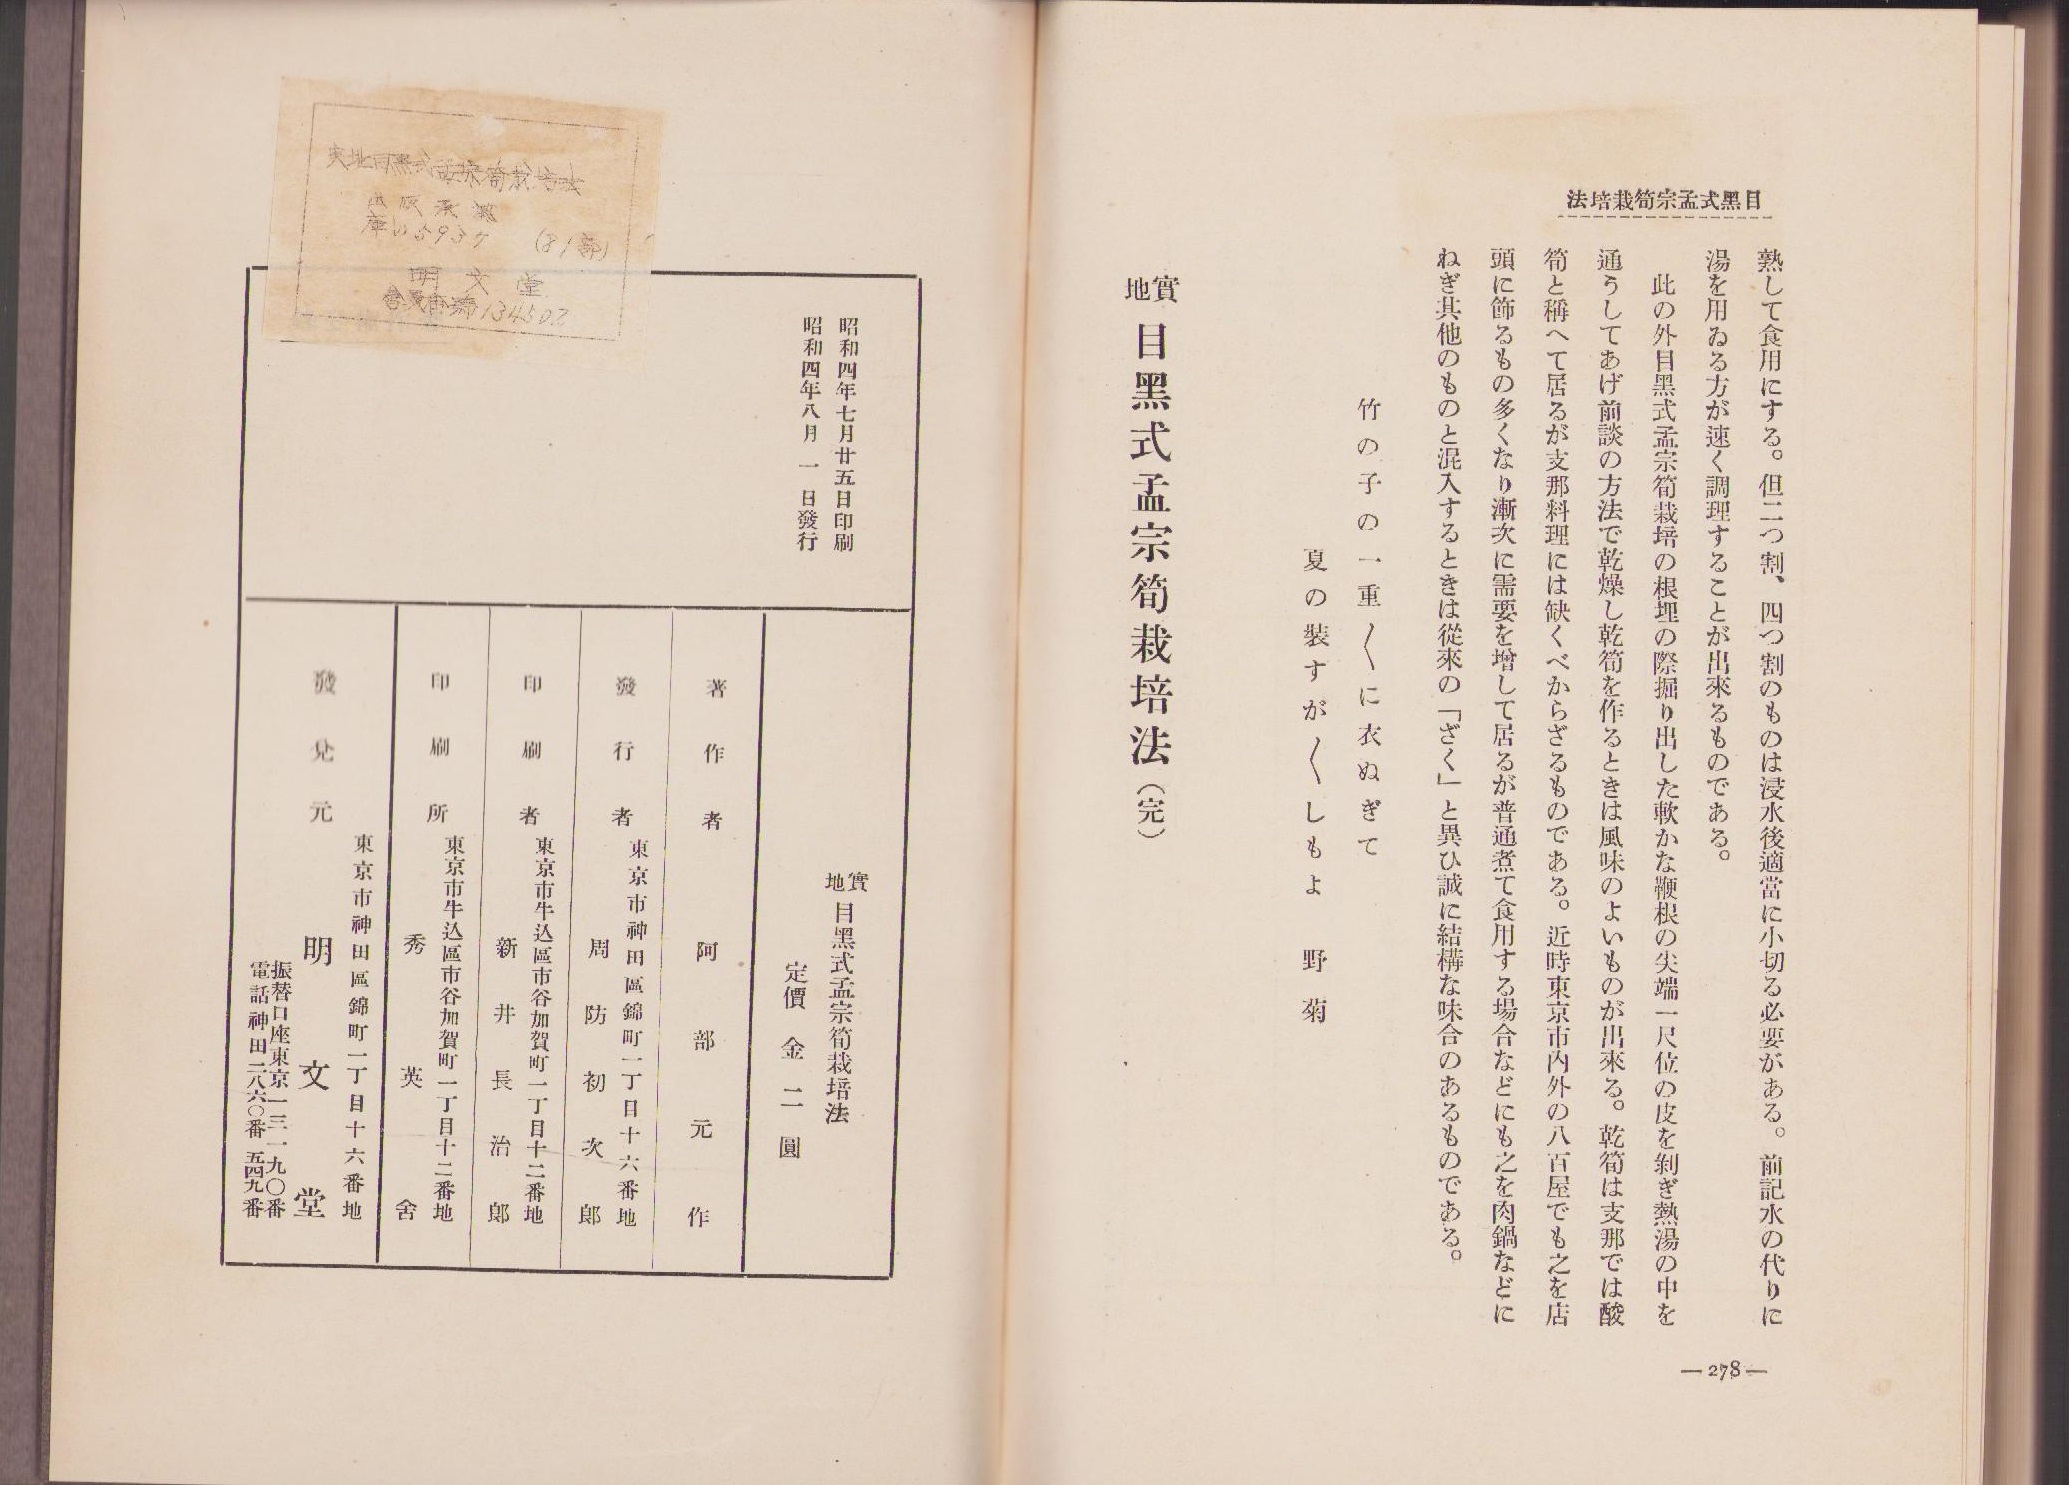 目黑式孟宗筍栽培法
熟して食用にする。但二つ割、四つ割のものは浸水後適當に小切る必要がある。前記水の代りに
湯を用ゐる方が速く調理することが出來るものである。
此の外目黑式孟宗筍栽培の根埋の際掘り出した軟かな鞭根の尖端一尺位の皮を剝ぎ熱湯の中を
通うしてあげ前談の方法で乾燥し乾筍を作るときは風味のよいものが出來る。乾筍は支那では酸
筍と稱へて居るが支那料理には缺くべからざるものである。近時東京市內外の八百屋でも之を店
頭に飾るもの多くなり漸次に需要を增して居るが普通煮て食用する場合などにも之を肉鍋などに
ねぎ其他のものと混入するときは從來の「ざく」と異ひ誠に結構な味合のあるものである。
竹の子の一重〱に衣ぬぎて
夏の裝すが〱しもよ 野菊
實地 目黑式孟宗筍栽培法（完）
—278—
実地目黒式孟宗筍栽培法
出版
5937 (81部)
明文堂
134502
昭和四年七月廿五日印刷
昭和四年八月一日發行
實地 目黑式孟宗筍栽培法
定價金二圓
著作者 阿部元作
東京市神田區錦町一丁目十六番地
發行者 周防初次郎
東京市牛込區市谷加賀町一丁目十二番地
印刷者 新井長治郎
東京市牛込區市谷加賀町一丁目十二番地
印刷所 秀英舍
東京市神田區錦町一丁目十六番地
發兌元 明文堂
振替口座東京一三一九〇番
電話神田二八六〇番 五四九番